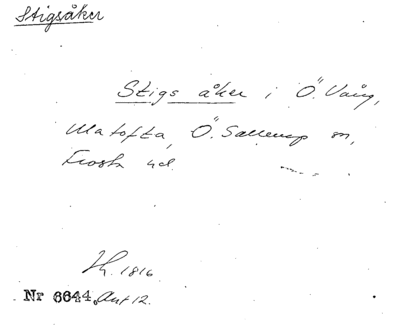 Stigsåker
Stigs åker i Ö. Vång,
Ulatofta, Ö. Sallerup sn,
Frosta hd.
1816
Nr 6644, Ant 12.